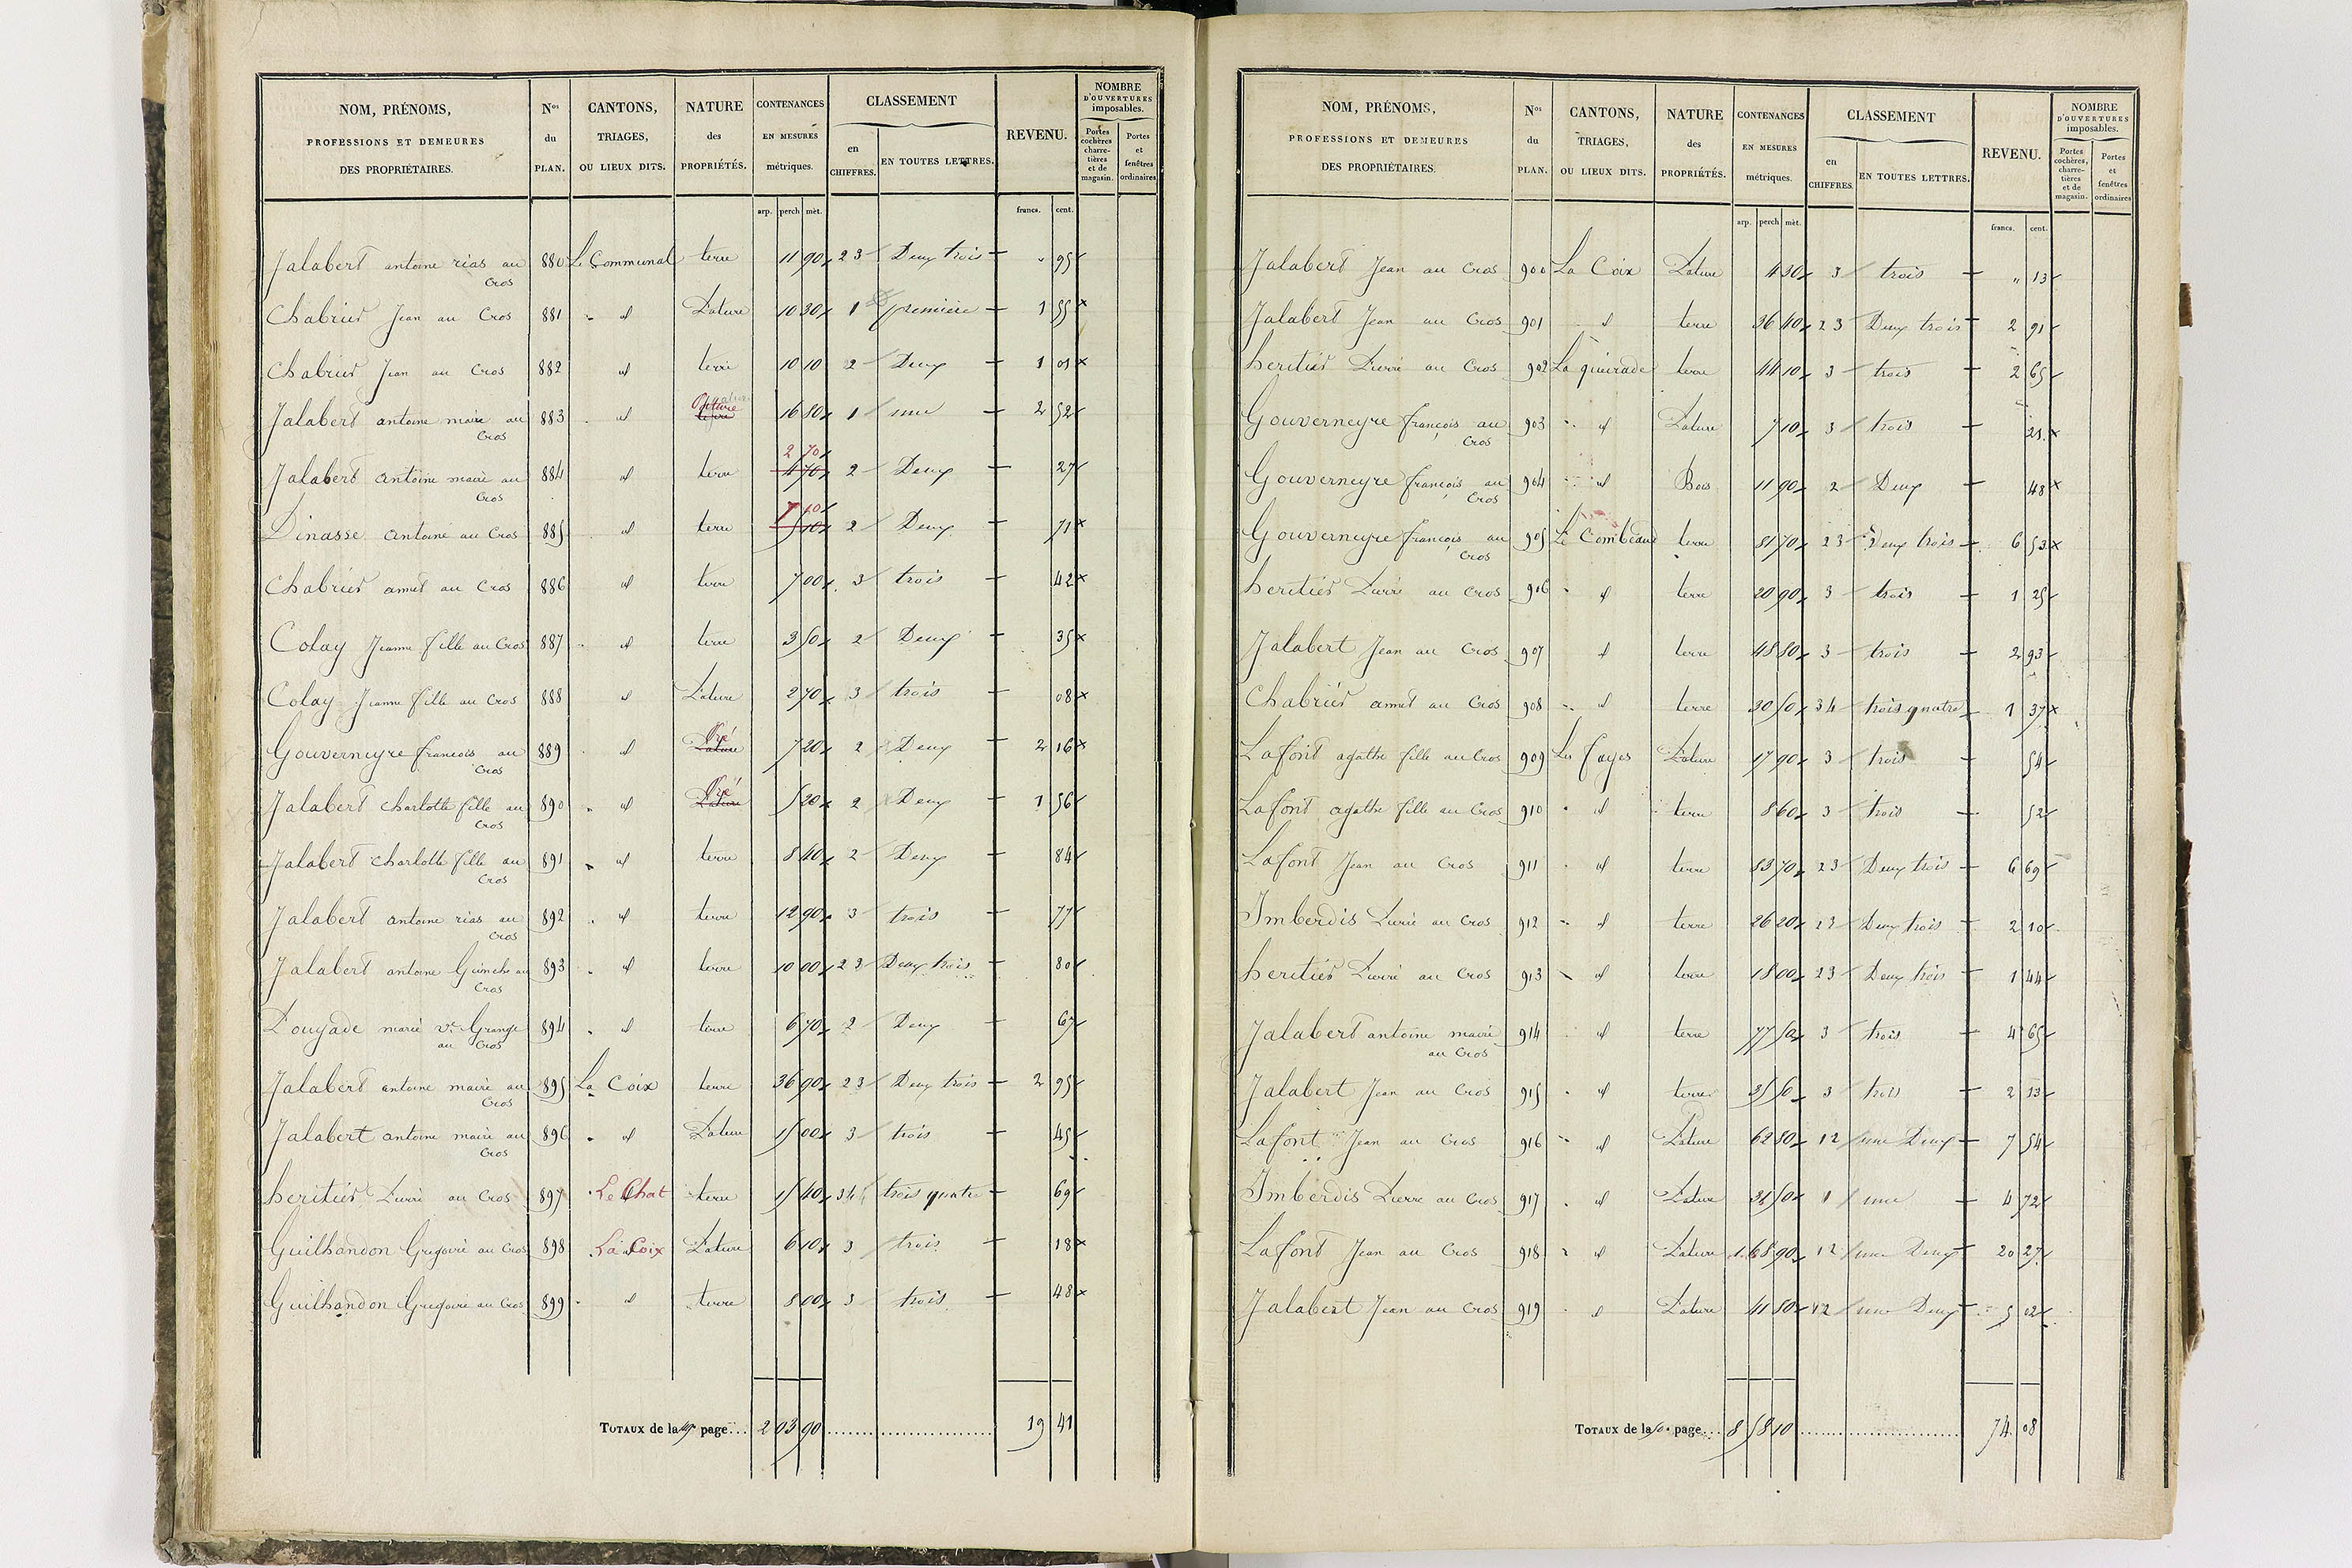 NOM, PRÉNOMS, PROFESSIONS ET DEMEURES DES PROPRIÉTAIRES. Nos du PLAN. CANTONS, TRIAGES, OU LIEUX DITS. NATURE des PROPRIÉTÉS. CONTENANCES EN MESURES métriques. CLASSEMENT en CHIFFRES. EN TOUTES LETTRES. REVENU. NOMBRE D'OUVERTURES imposables. Portes cochères charretières et de magasin. Portes et fenêtres ordinaires
arp. perch mèt. francs. cent.
Jalabert antoine rias au Cros 880 Le Communal terre 11 90 23 Deux trois " 95
Chabrier Jean au Cros 881 id Pature 10 30 1 première 1 55
Chabrier Jean au Cros 882 id terre 10 10 2 Deux 1 01
Jalabert antoine maire au Cros 883 id Pature 16 80 1 une 2 52
Jalabert antoine maire au Cros 884 id terre 2 70 2 Deux 27
Dinasse antoine au Cros 885 id terre 7 10 2 Deux 71
Chabrier annet au Cros 886 id terre 7 00 3 trois 42
Colay Jeanne fille au Cros 887 id terre 3 50 2 Deux 35
Colay Jeanne fille au Cros 888 id Pature 2 70 3 trois 08
Gouverneyre francois au Cros 889 id Pré Pature 7 20 2 Deux 2 16
Jalabert charlotte fille au Cros 890 id Pré Pature 5 20 2 Deux 1 56
Jalabert charlotte fille au Cros 891 id terre 8 40 2 Deux 84
Jalabert antoine rias au Cros 892 id terre 12 90 3 trois 77
Jalabert antoine Guinche au Cros 893 id terre 10 00 23 Deux trois 80
Douyade marie ve Grange au Cros 894 id terre 6 70 2 Deux 67
Jalabert antoine maire au Cros 895 La Coix terre 36 90 23 Deux trois 2 95
Jalabert antoine maire au Cros 896 id Pature 15 00 3 trois 45
heritier Pierre au Cros 897 Le Chat terre 15 40 34 trois quatre 69
Guilhandon Gregoire au Cros 898 La Coix Pature 6 10 3 trois 18
Guilhandon Gregoire au Cros 899 id terre 8 00 3 trois 48
TOTAUX de la 49e page... 2 03 90 19 41
NOM, PRÉNOMS, PROFESSIONS ET DEMEURES DES PROPRIÉTAIRES. Nos du PLAN. CANTONS, TRIAGES, OU LIEUX DITS. NATURE des PROPRIÉTÉS. CONTENANCES EN MESURES métriques. CLASSEMENT en CHIFFRES. EN TOUTES LETTRES. REVENU. NOMBRE D'OUVERTURES imposables. Portes cochères, charretières et de magasin. Portes et fenêtres ordinaires
arp. perch mèt. francs. cent.
Jalabert Jean au Cros 900 La Coix Pature 4 30 3 trois " 13
Jalabert Jean au Cros 901 id terre 36 40 23 Deux trois 2 91
heritier Pierre au Cros 902 La queirade terre 44 10 3 trois 2 65
Gouverneyre françois au Cros 903 id Pature 7 10 3 trois 21
Gouverneyre françois au Cros 904 id Bois 11 90 2 Deux 48
Gouverneyre françois au Cros 905 Le Combeaud terre 81 70 23 Deux trois 6 53
heritier Pierre au Cros 906 id terre 20 90 3 trois 1 25
Jalabert Jean au Cros 907 id terre 48 80 3 trois 2 93
Chabrier annet au Cros 908 id terre 30 50 34 trois quatre 1 37
Lafont agathe fille au Cros 909 Les fayes Pature 17 90 3 trois 54
Lafont agathe fille au Cros 910 id terre 8 60 3 trois 52
Lafont Jean au Cros 911 id terre 83 70 23 Deux trois 6 69
Imberdis Pierre au Cros 912 id terre 26 20 23 Deux trois 2 10
heritier Pierre au Cros 913 id terre 18 00 23 Deux trois 1 44
Jalabert antoine maire au Cros 914 id terre 77 50 3 trois 4 65
Jalabert Jean au Cros 915 id terre 35 50 3 trois 2 13
Lafont Jean au Cros 916 id Pature 62 80 12 une Deux 7 54
Imberdis Pierre au Cros 917 id Pature 31 50 1 une 4 72
Lafont Jean au Cros 918 id Pature 1 68 90 12 une Deux 20 27
Jalabert Jean au Cros 919 id Pature 41 80 12 une Deux 5 02
TOTAUX de la 50e page... 8 58 10 74 08